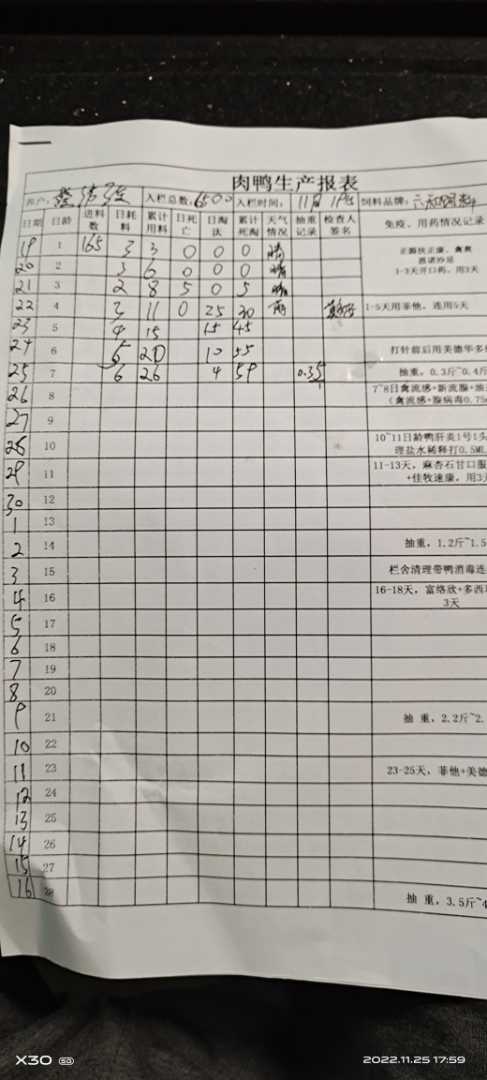 肉鸭生产报表
客户: 入栏总数: 6500 入栏时间: 11月 饲料品牌: 六和
日期 日龄 进料数 日耗料 累计用料 日死亡 日淘汰 累计死淘 天气情况 抽重记录 检查人签名 免疫、用药情况记录
19 1 165 3 3 0 0 0 晴 正源扶正康、禽爽 恩诺沙星
20 2 3 6 0 0 0 晴 1-3天开口药，用3天
21 3 2 8 5 0 5 晴
22 4 3 11 0 25 30 雨 1-5天用菲他，连用5天
23 5 4 15 15 45
24 6 5 20 10 55 打针前后用美德华多
25 7 6 26 4 59 0.35 抽重，0.3斤~0.4斤
26 8 7~8日禽流感+新流腺+ （禽流感+腺病毒0.75
27 9
28 10 10~11日龄鸭肝炎1号1头 理盐水稀释打0.5ML
29 11 11-13天，麻杏石甘口服 +佳牧速康，用3
30 12
1 13
2 14 抽重，1.2斤~1.5
3 15 栏舍清理带鸭消毒连
4 16 16-18天，富络欣+多西 3天
5 17
6 18
7 19
8 20
9 21 抽 重，2.2斤~2.
10 22
11 23 23-25天，菲他+美德
12 24
13 25
14 26
15 27
16 28 抽 重，3.5斤~4
X30 5G 2022.11.25 17:59